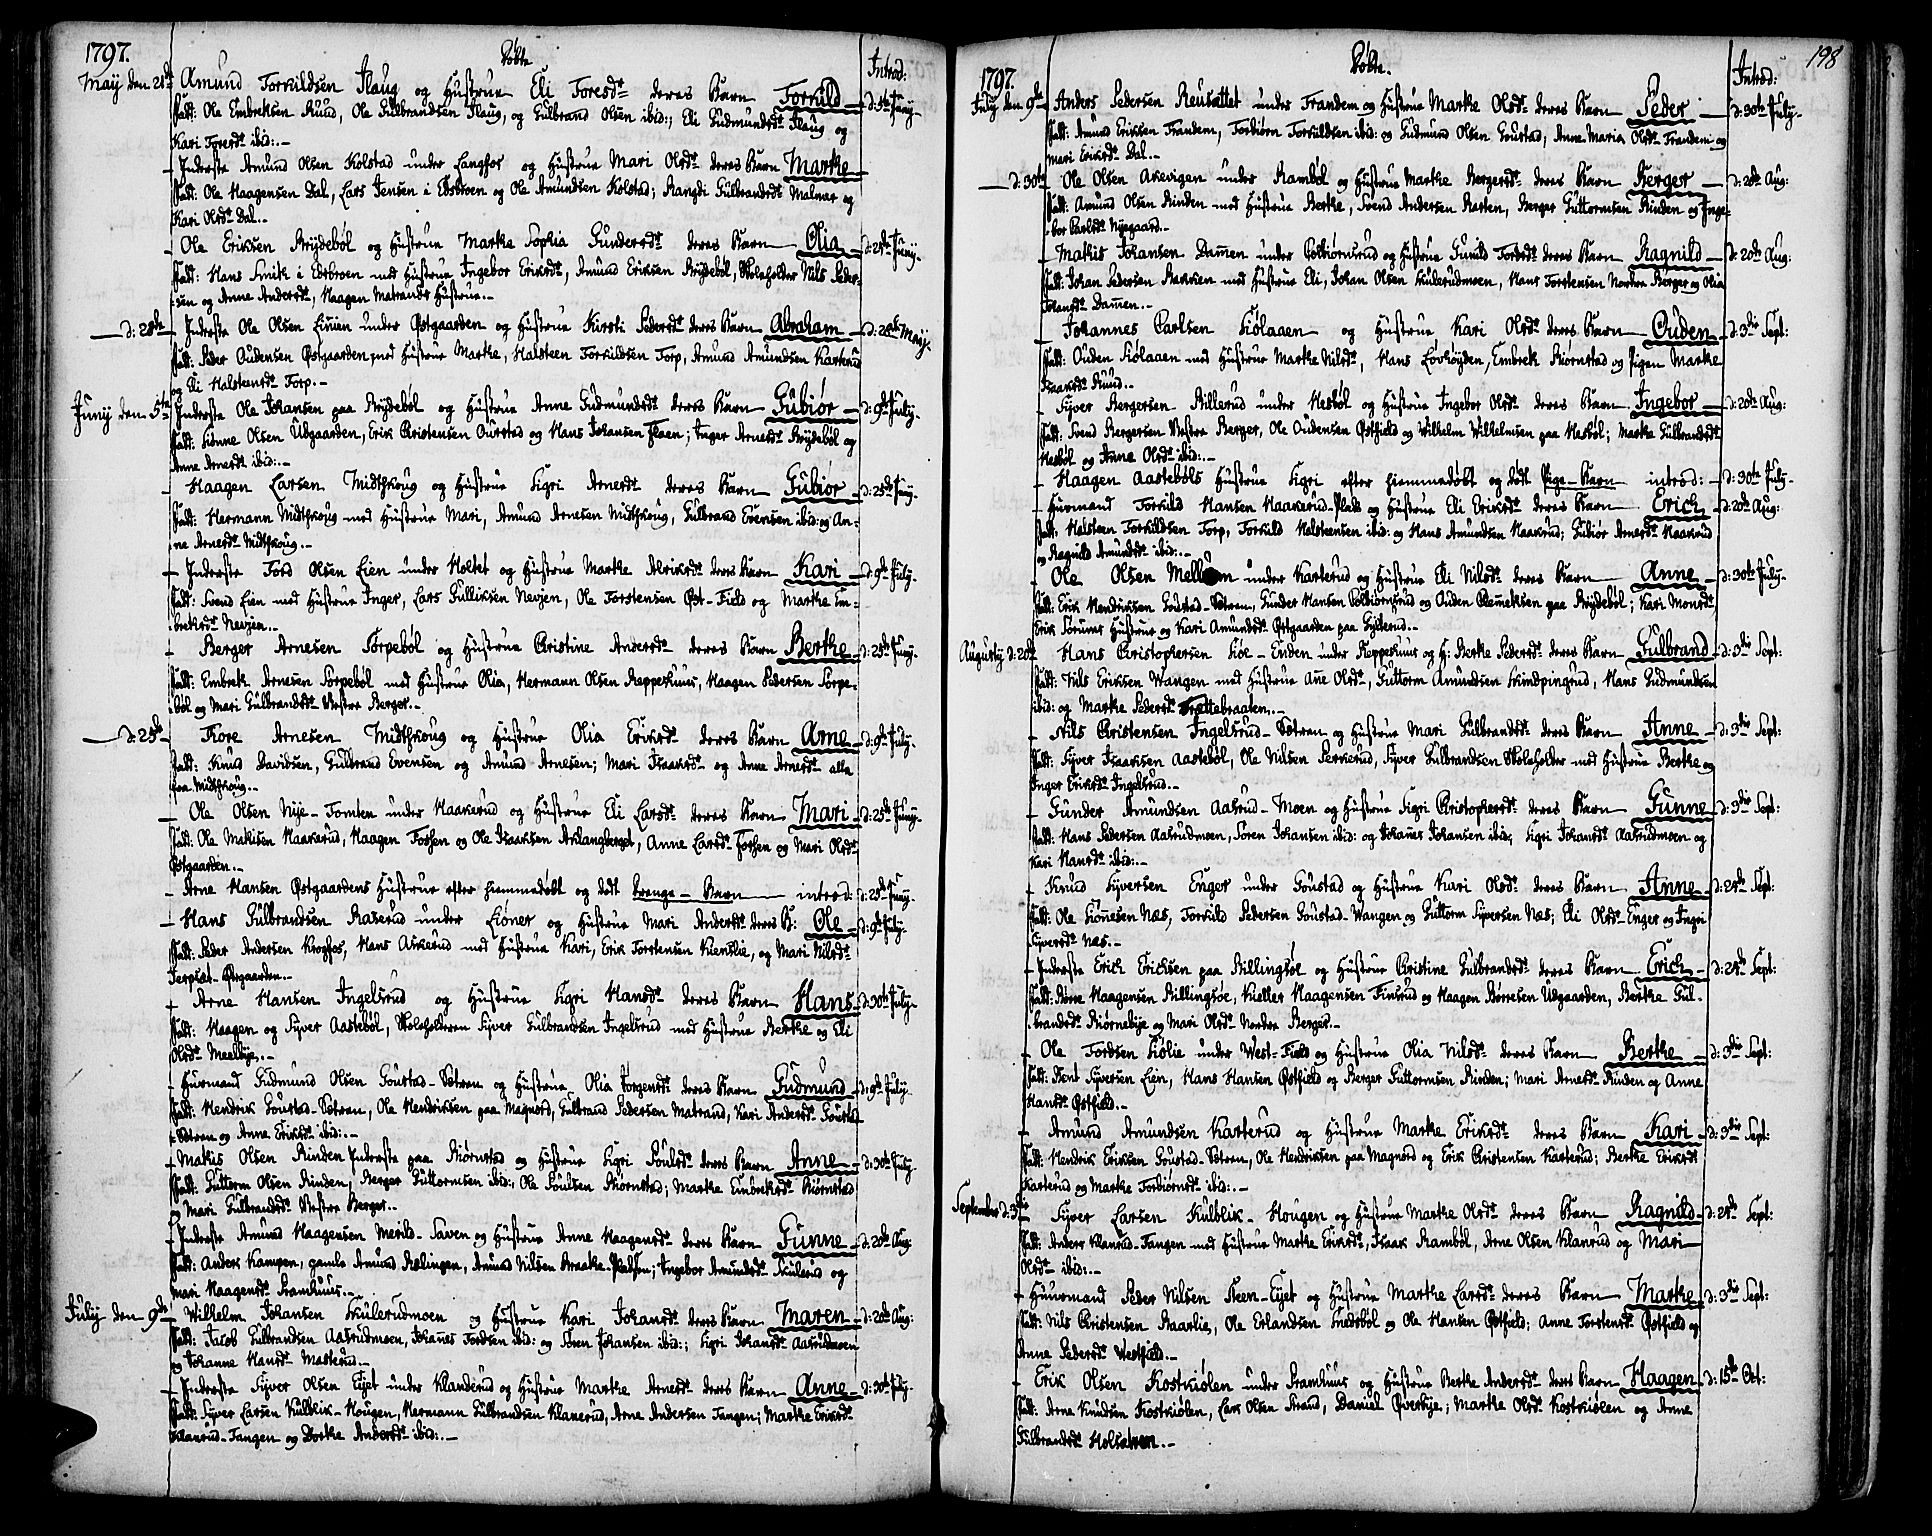 1797. Døbte Introd:
May den 21de Amund Torkildsen Flaug og Hustrue Eli Toresdr deres Barn Torkild d: 5te Juny
fadd: Ole Embreksen Ruud, Ole Gulbrandsen Flaug, og Gulbrand Olsen ibid:, Eli Gudmundsdr Flaug og
Kari Toresdr ibid:
Inderste Amund Olsen Kolstad under Langfos og Hustrue Mari Olsdr deres Barn Marthe
fadd: Ole Haagensen Dal, Lars Jensen i Edsbroen og Ole Amundsen Kolstad; Rangdi Gulbrandsdr Malmer og
Kari Olsdr Dal.
Ole Eriksen Brydebøl og Hustrue Marthe Sophia Gundersdr deres Barn Olia d: 25de Juny
fadd: Hans Smith i Edsbroen med Hustrue Ingebor Eriksdr, Amund Eriksen Brydebøl, Skoleholder Nils Peder-
sen og Anne Andersdr, Haagen Matrands Hustrue.
d: 28de Inderste Ole Olsen Linien under Østgaarden og Hustrue Kirsti Pedersdr deres Barn Abraham d: 28de May
fadd: Peder Oudensen Østgaarden med Hustrue Marthe, Halsteen Torkildsen Torp, Amund Amundsen Karterud
og Eli Halsteensdr Torp.
Juny den 5te Inderste Ole Johansen paa Brydebøl og Hustrue Anne Gudmundsdr deres Barn Gubiør d: 9de July
fadd: Simme Olsen Udgaarden, Erik Christensen Ourstad og Hans Johansen Flaen; Inger Arnesdr Brydebøl og
Anne Arnesdr ibid:
Haagen Larsen Midtskoug og Hustrue Sigri Arnesdr deres Barn Gubiør d: 25de Juny
fadd: Hermann Midtskoug med Hustrue Mari, Amund Arnesen Midtskoug, Gulbrand Evensen ibid: og An-
ne Arnesdr Midtskoug.
Inderste Tord Olsen Lien under Holtet og Hustrue Marthe Alriksdr deres Barn Kari d: 9de July
fadd: Svend Lien med Hustrue Inger, Lars Gulliksen Nevjen, Ole Torstensen Øst-Field og Marthe Em-
breksdr Nevjen.
Berger Arnesen Torpebøl og Hustrue Christine Andersdr deres Barn Berthe d: 25de Juny
fadd: Embrek Arnesen Torpebøl med Hustrue Olia, Hermann Olsen Reppeshuus, Haagen Pedersen Torpe-
bøl og Mari Gulbrandsdr Westre Berger.
d: 25de Tore Arnesen Midtskoug og Hustrue Olia Eriksdr deres Barn Arne d: 9de July
fadd: Knud Davidsen, Gulbrand Evensen og Amund Arnesen; Mari Isaaksdr og Anne Arnesdr alle
paa Midtskoug.
Ole Olsen Nye-Tomten under Haakerud og Hustrue Eli Larsdr deres Barn Mari d: 25de Juny
fadd: Ole Mathisen Haakerud, Haagen Fossen og Ole Isaaksen Aklangberget, Anne Larsdr Fossen og Mari Olsdr
Østgaarden.
Arne Hansen Østgaardens Hustrue efter hiemmedøbt og dødt Drenge-Barn introd: d: 25de Juny
Hans Gulbrandsen Raserud under Lioner og Hustrue Mari Andersdr deres B: Ole d: 9de July
fadd: Peder Andersen Krogfos, Hans Askerud med Hustrue Kari, Erik Torstensen Kienslie, og Mari Nilsdr
Østgaarden.
Arne Hansen Ingelsrud og Hustrue Sigri Hansdr deres Barn Hans d: 30te July
fadd: Haagen og Syver Aastebøl, Skoleholderen Syver Gulbrandsen Ingelsrud med Hustrue Berthe og Eli
Olsdr Meelbye.
Huusmand Gudmund Olsen Goustad-Sætren og Hustrue Olia Jorgensdr deres Barn Gudmund d: 9de July
fadd: Hendrik Goustad-Sætren, Ole Hendriksen paa Magnord, Gulbrand Pedersen Matrand, Kari Andersdr Goustad
Sætren og Anne Eriksdr ibid:
Mathis Olsen Rinden Inderste paa Biørnstad og Hustrue Sigri Poulsdr deres Barn Anne d: 30te July
fadd: Guttorm Olsen Rinden, Berger Guttormsen ibid:, Ole Poulsen Biørnstad; Marthe Embreksdr Biørnstad
og Mari Gulbrandsdr Westre Berger.
Inderste Amund Haagensen Merild-Saven og Hustrue Anne Haagensdr deres Barn Gunne d: 20de Aug:
fadd: Anders Kampen, gamle Amund Rælingen, Amund Nilsen Kraake-Pladsen; Ingebor Amundsdr Skulerud og
Mari Haagensdr Framhuus.
July den 9de Wilhelm Johansen Skulerudmoen og Hustrue Kari Johansdr deres Barn Maren d: 20de Aug:
fadd: Jacob Gulbrandsen Aasrudmoen, Johannes Tordsen ibid: og Soren Johansen ibid:; Sigri Johansdr Aasrudmoen
og Johanne Hansdr Masterud.
Inderste Syver Olsen Eyet under Klanderud og Hustrue Marthe Arnesdr deres Barn Anne d: 30te July
fadd: Syver Larsen Kulblik-Hougen, Hermann Gulbrandsen Klanerud, Arne Andersen Tangen; Marthe Eriksdr
Klanrud-Tangen og Dorthe Andersdr ibid:
198
1797. Døbte. Introd:
July den 9de Anders Pedersen Reusættet under Frandem og Hustrue Marthe Olsdr deres Barn Peder d: 30te July
fadd: Amund Eriksen Frandem, Torbiørn Torkildsen ibid: og Gudmund Olsen Goustad, Anne Maria Olsdr Frandem og
Mari Eriksdr Dal.
d: 30te Ole Olsen Akevigen under Rambøl og Hustrue Marthe Bergersdr deres Barn Berger d: 20de Aug:
fadd: Amund Olsen Rinden med Hustrue Berthe, Svend Andersen Rasten, Berger Guttormsen Rinden og Inge-
bor Carlsdr Nyegaard.
Mathis Johansen Dammen under Colbiørnsrud og Hustrue Gunild Tordsdr deres Barn Ragnild d: 20de Aug:
fadd: Johan Pedersen Bakken med Hustrue Eli, Johan Olsen Skulerudmoen, Hans Torstensen Nordre Berger og Olia
Johansdr Dammen.
Johannes Carlsen Siølaaen og Hustrue Kari Olsdr deres Barn Ouden d: 3die Sept:
fadd: Ouden Siølaaen med Hustrue Marthe Nilsdr, Hans Løvhøyden, Embrek Biørnstad og pigen Marthe
Isaaksdr Ruud.
Syver Bergersen Billerud under Nesbøl og Hustrue Ingebor Olsdr deres Barn Ingebor d: 20de Aug:
fadd: Svend Bergersen Westre Berger, Ole Oudensen Østfield og Wilhelm Wilhelmsen paa Nesbøl; Marthe Gulbrandsdr
Nesbøl og Anne Olsdr ibid:
Haagen Aastebøls Hustrue Sigri efter hiemmedøbt og dødt Pige-Barn introd: d: 30te July
Huusmand Torkild Hansen Haakerud-Plads og Hustrue Eli Eriksdr deres Barn Erich d: 20de Aug:
fadd: Halsteen Torkildsen Torp, Torkild Halsteensen ibid: og Hans Amundsen Haakrud; Gubiør Arnesdr Haakrud
og Ragnild Amundsdr ibid:
Ole Olsen Mellem under Karterud og Hustrue Eli Nilsdr deres Barn Anne d: 30te July
fadd: Erik Hendriksen Goustad-Sætren, Gunder Hansen Colbiørnsrud og Ouden Clemetsen paa Brydebøl; Kari Monsdr
Erik Sorums Hustrue og Kari Amundsdr Østgaarden paa Gylterud.
Augusty d: 20de Hans Christophersen Siøe-Enden under Reppeshuus og H: Berthe Pedersdr deres Barn Gulbrand d: 3die Sept:
fadd: Nils Eriksen Wangen med Hustrue Ane Olsdr, Guttorm Amundsen Skindpingrud, Hans Gudmundsen
ibid: og Marthe Pedersdr Trættebraaten.
Nils Christensen Ingelsrud-Sætren og Hustrue Mari Gulbrandsdr deres Barn Anne d: 3die Sept:
fadd: Syver Isaaksen Aastebøl, Ole Nilsen Perkerud, Syver Gulbrandsen Skoleholder med Hustrue Berthe og
Inger Eriksdr Ingelsrud.
Gunder Amundsen Aasrud-Moen og Hustrue Sigri Christophersdr deres Barn Gunne d: 3die Sept:
fadd: Hans Pedersen Aasrudmoen, Soren Johansen ibid: og Johanes Johansen ibid; Sigri Johansdr Aasrudmoen og
Kari Hansdr ibid:
Knud Syversen Enger under Goustad og Hustrue Kari Olsdr deres Barn Anne d: 24de Sept:
fadd: Ole Simmesen Næs, Torkild Pedersen Goustad-Wangen og Guttorm Syversen Næs; Eli Olsdr Enger og Ingri
Syversdr Næs.
Inderste Erich Erichsen paa Billingsøe og Hustrue Christine Gulbrandsdr deres Barn Erich d: 24de Sept:
fadd: Børre Haagensen Billingsøe, Kieller Haagensen Finsrud og Haagen Børresen Udgaarden, Berthe Gul-
brandsdr Biørnebye og Mari Olsdr Nordre Berger.
Ole Tordsen Siølie under West-Field og Hustrue Olia Nilsdr deres Barn Berthe d: 3die Sept:
fadd: Bent Syversen Lien, Hans Hansen Østfield og Berger Guttormsen Rinden; Mari Arnesdr Rinden og Anne
Hansdr Østfield.
Amund Amundsen Karterud og Hustrue Marthe Eriksdr deres Barn Kari d: 3die Sept:
fadd: Hendrik Eriksen Goustad-Sætren, Ole Hendriksen paa Magnord og Erik Christensen Karterud; Berthe Eriksdr
Karterud og Marthe Torbiørnsdr ibid:
September d: 3die Syver Larsen Kulblik-Hougen og Hustrue Marthe Olsdr deres Barn Ragnild d: 24de Sept:
fadd: Anders Klanrud-Tangen med Hustrue Marthe Eriksdr, Isaak Rambøl, Arne Olsen Klanrud og Mari
Olsdr ibid:
Huusmand Peder Nilsen Steen-Eyet og Hustrue Marthe Larsdr deres Barn Marthe d: 3die Sept:
fadd: Nils Christensen Baarlie, Ole Erlandsen Snedsbøl og Ole Hansen Østfield; Anne Torstensdr Østfield og
Anne Pedersdr Westfield.
Erik Olsen Kostkiølen under Framhuus og Hustrue Berthe Andersdr deres Barn Haagen d: 15de Oct:
fadd: Arne Knudsen Kostkiølen, Lars Olsen Strand, Daniel Øverbye; Marthe Olsdr Kostkiølen og Anne
Gulbrandsdr Holsætren.